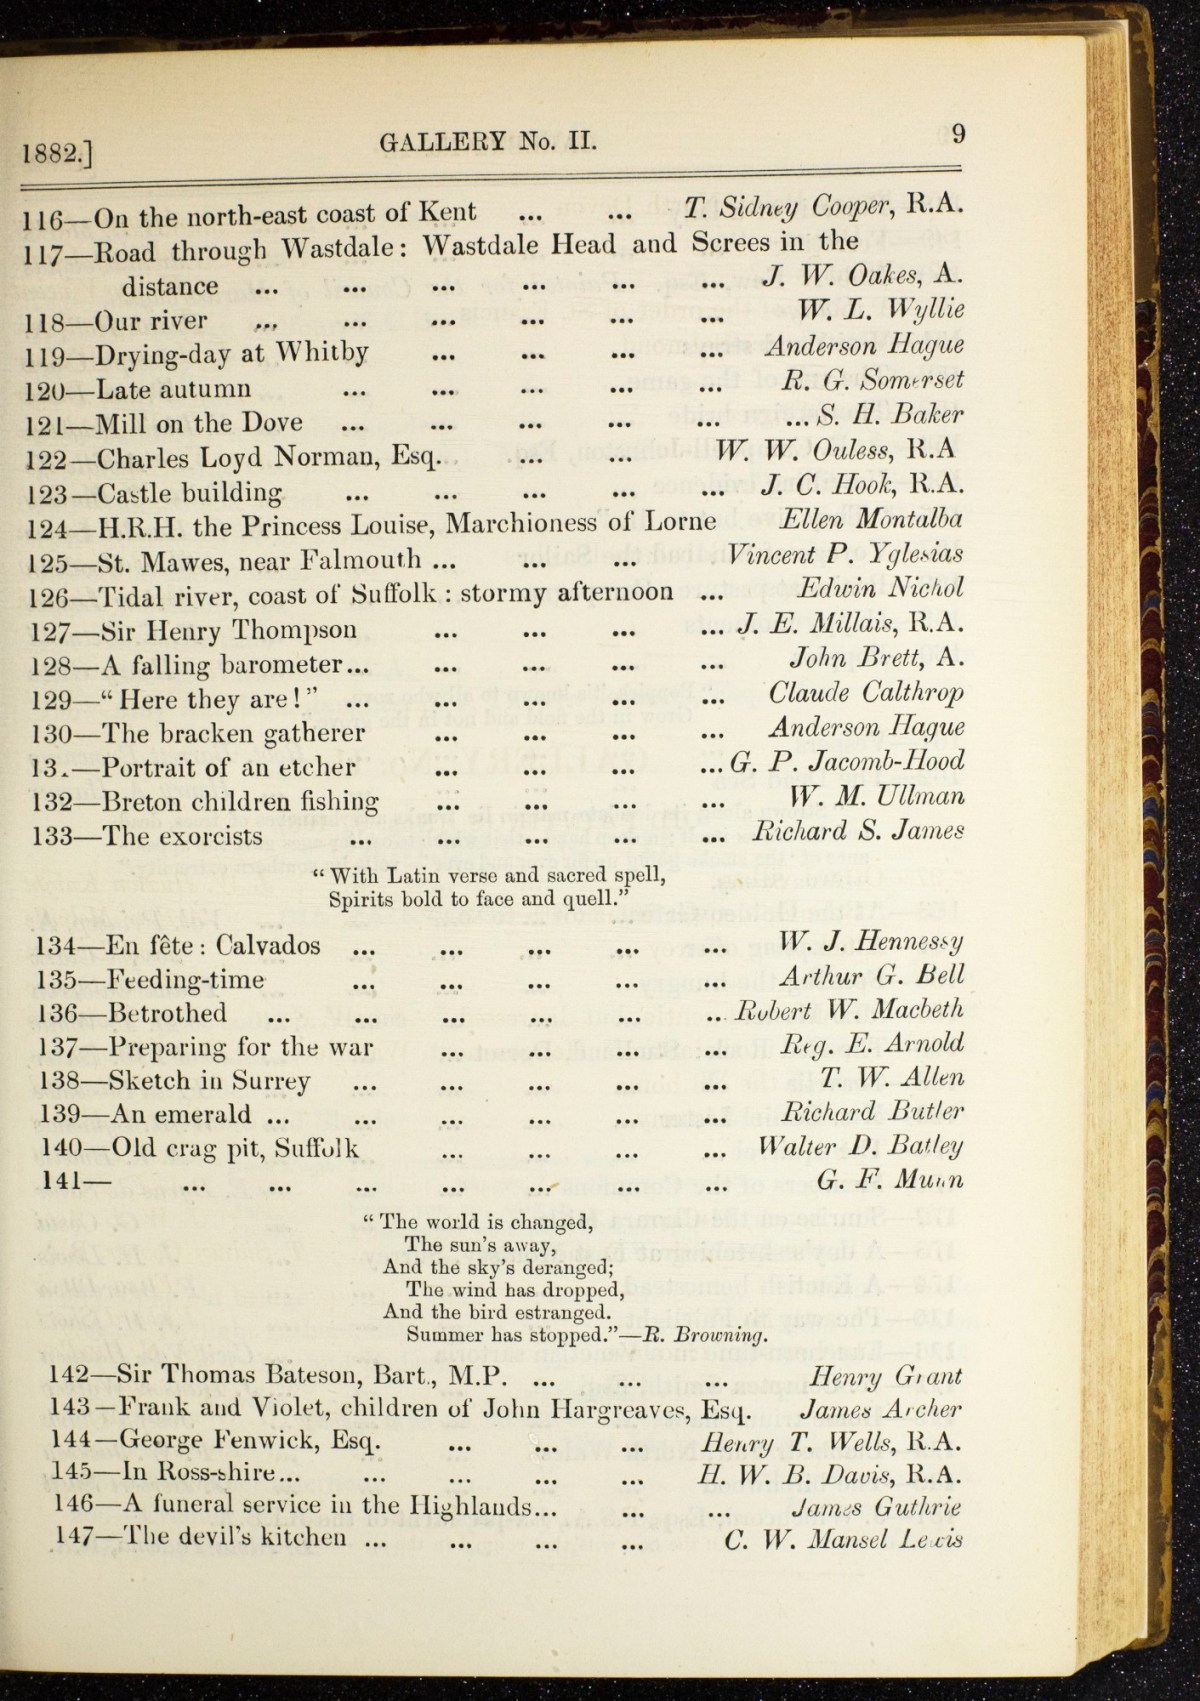 1882.] GALLERY No. II. 9
116—On the north-east coast of Kent ... ... T. Sidney Cooper, R.A.
117—Road through Wastdale: Wastdale Head and Screes in the
distance ... ... ... ... ... ... J. W. Oakes, A.
118—Our river ... ... ... ... ... ... W. L. Wyllie
119—Drying-day at Whitby ... ... ... ... Anderson Hague
120—Late autumn ... ... ... ... ... R. G. Somerset
121—Mill on the Dove ... ... ... ... ... ... S. H. Baker
122—Charles Loyd Norman, Esq. ... ... W. W. Ouless, R.A
123—Castle building ... ... ... ... ... J. C. Hook, R.A.
124—H.R.H. the Princess Louise, Marchioness of Lorne Ellen Montalba
125—St. Mawes, near Falmouth ... ... ... Vincent P. Yglesias
126—Tidal river, coast of Suffolk : stormy afternoon ... Edwin Nichol
127—Sir Henry Thompson ... ... ... ... J. E. Millais, R.A.
128—A falling barometer... ... ... ... ... John Brett, A.
129—“ Here they are! ” ... ... ... ... ... Claude Calthrop
130—The bracken gatherer ... ... ... ... Anderson Hague
13.—Portrait of an etcher ... ... ... ... G. P. Jacomb-Hood
132—Breton children fishing ... ... ... ... W. M. Ullman
133—The exorcists ... ... ... ... ... Richard S. James
“ With Latin verse and sacred spell,
Spirits bold to face and quell.”
134—En fête : Calvados ... ... ... ... ... W. J. Hennessy
135—Feeding-time ... ... ... ... ... Arthur G. Bell
136—Betrothed ... ... ... ... ... .. Robert W. Macbeth
137—Preparing for the war ... ... ... ... Reg. E. Arnold
138—Sketch in Surrey ... ... ... ... ... T. W. Allen
139—An emerald ... ... ... ... ... ... Richard Butler
140—Old crag pit, Suffolk ... ... ... ... Walter D. Batley
141— ... ... ... ... ... ... ... G. F. Munn
“ The world is changed,
The sun's away,
And the sky's deranged;
The wind has dropped,
And the bird estranged.
Summer has stopped.”—R. Browning.
142—Sir Thomas Bateson, Bart., M.P. ... ... ... Henry Grant
143—Frank and Violet, children of John Hargreaves, Esq. James Archer
144—George Fenwick, Esq. ... ... ... Henry T. Wells, R.A.
145—In Ross-shire... ... ... ... ... H. W. B. Davis, R.A.
146—A funeral service in the Highlands... ... ... James Guthrie
147—The devil's kitchen ... ... ... ... C. W. Mansel Lewis